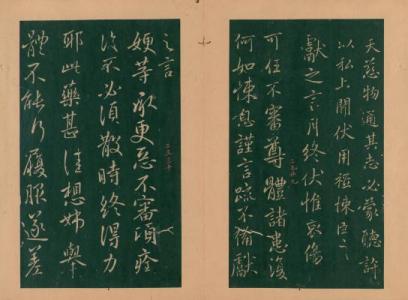 天慈物通其志必蒙聽許
以私上聞伏用悚臣之
獻之言月終伏惟哀傷
可任不審尊體諸患復
何如悚息謹言疏不備獻
之言
等承更惡不審頃
復不必須散時終得力
耶此藥甚佳想姊舉
體不能行履服遂差